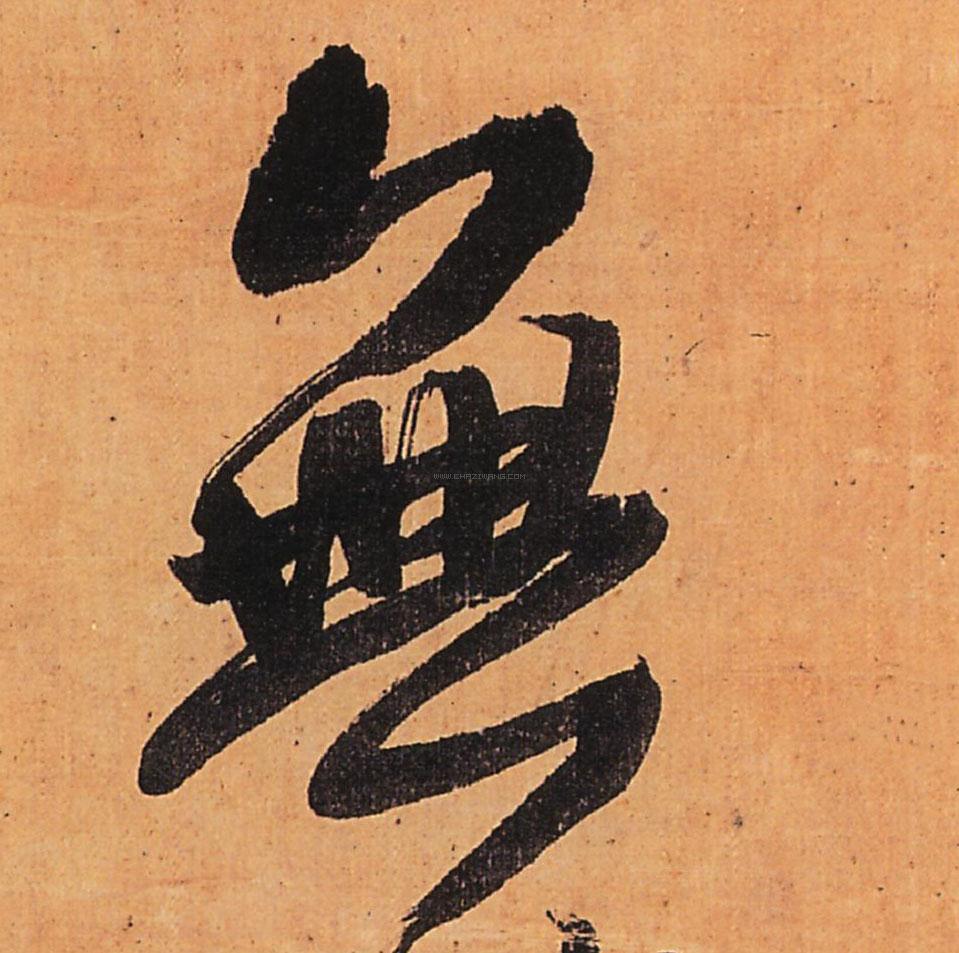 無
WWW.CHAZIWANG.COM